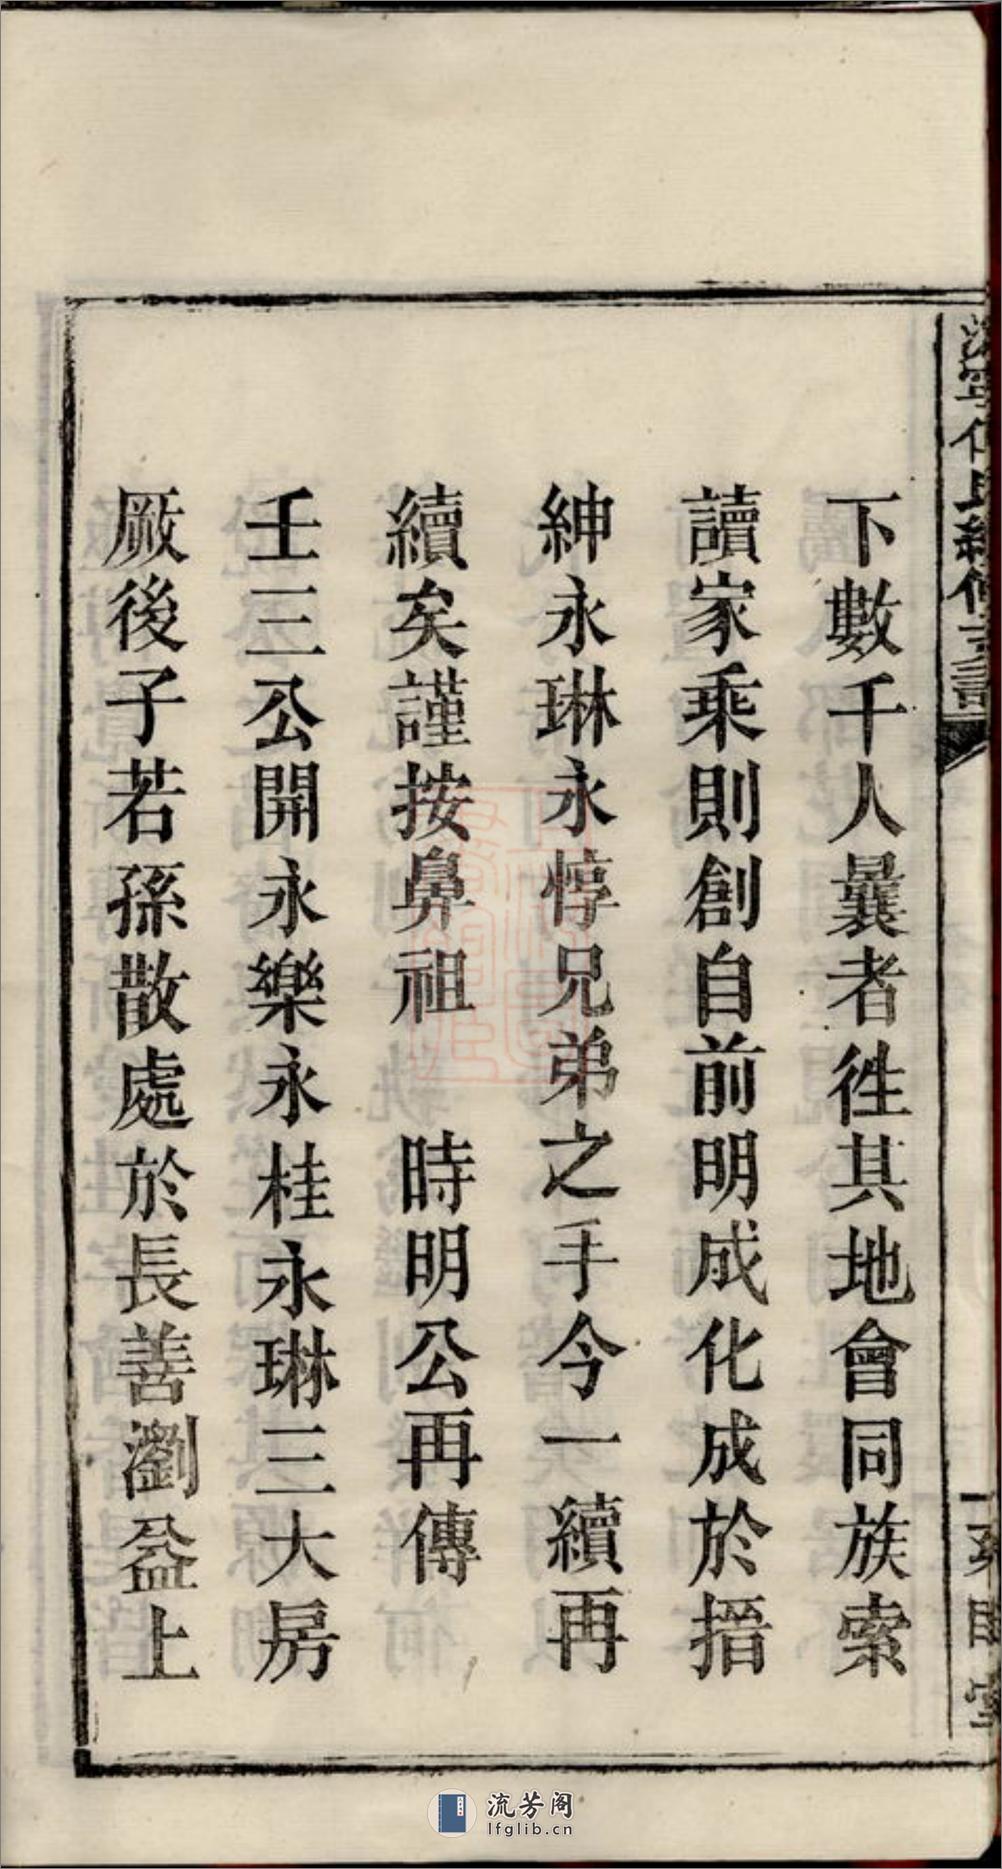 下數千人曩者徃其地會同族索
讀家乘則創自前明成化成於搢
紳永琳永惇兄弟之手今一續再
續矣謹按鼻祖　時明公再傳
壬三公開永樂永桂永琳三大房
厥後子若孫散處於長善瀏益上
流芳阁
lfglib.cn